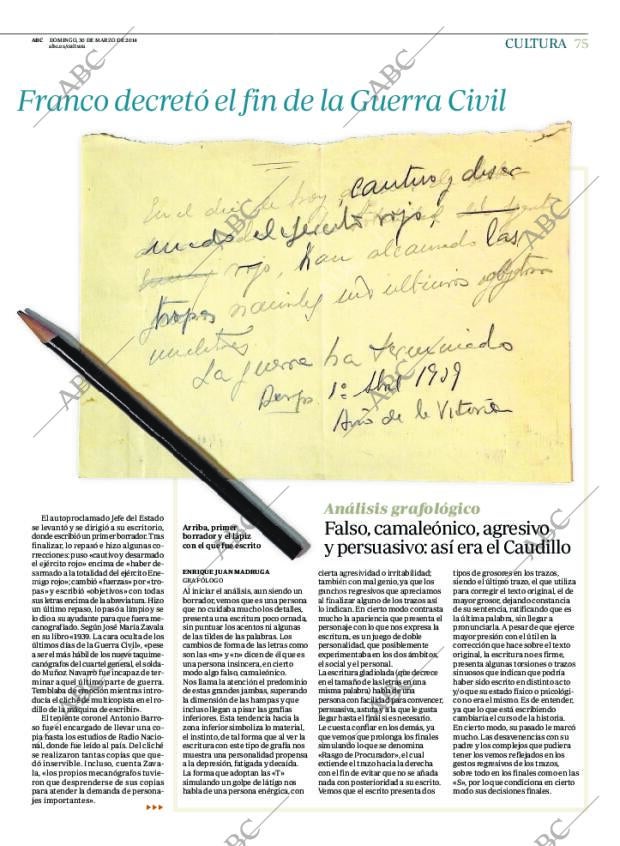 ABC DOMINGO, 30 DE MARZO DE 2014
abc.es/cultura
CULTURA 75
Franco decretó el fin de la Guerra Civil
En el día de hoy, cautivo y desar
mado el ejército rojo,
rojo, han alcanzado las
tropas nacionales sus ultimos objetivos
militares.
La guerra ha terminado
Burgos 1º Abril 1939
Año de la Victoria
El autoproclamado Jefe del Estado
se levantó y se dirigió a su escritorio,
donde escribió un primer borrador. Tras
finalizar, lo repasó e hizo algunas co-
rrecciones: puso «cautivo y desarmado
el ejército rojo» encima de «haber de-
sarmado a la totalidad del ejército Ene-
migo rojo»; cambió «fuerzas» por «tro-
pas» y escribió «objetivos» con todas
sus letras encima de la abreviatura. Hizo
un último repaso, lo pasó a limpio y se
lo dio a su ayudante para que fuera me-
canografiado. Según José María Zavala
en su libro «1939. La cara oculta de los
últimos días de la Guerra Civil», «pese
a ser el más hábil de los nueve taquime-
canógrafos del cuartel general, el solda-
do Muñoz Navarro fue incapaz de ter-
minar a aquel último parte de guerra.
Temblaba de emoción mientras intro-
ducía el cliché de multicopista en el ro-
dillo de la máquina de escribir».
El teniente coronel Antonio Barro-
so fue el encargado de llevar una co-
pia hasta los estudios de Radio Nacio-
nal, donde fue leído al país. Del cliché
se realizaron tantas copias que que-
dó inservible. Incluso, cuenta Zava-
la, «los propios mecanógrafos tuvie-
ron que desprenderse de sus copias
para atender la demanda de persona-
jes importantes».
Arriba, primer
borrador y el lápiz
con el que fue escrito
Análisis grafológico
Falso, camaleónico, agresivo
y persuasivo: así era el Caudillo
ENRIQUE JUAN MADRUGA
GRAFÓLOGO
Al iniciar el análisis, aun siendo un
borrador, vemos que es una persona
que no cuidaba mucho los detalles,
presenta una escritura poco ornada,
sin puntuar los acentos ni algunas
de las tildes de las palabras. Los
cambios de forma de las letras como
son las «m» y «n» dicen de él que es
una persona insincera, en cierto
modo algo falso, camaleónico.
Nos llama la atención el predominio
de estas grandes jambas, superando
la dimensión de las hampas y que
incluso llegan a pisar las grafías
inferiores. Esta tendencia hacia la
zona inferior simboliza lo material,
el instinto, de tal forma que al ver la
escritura con este tipo de grafía nos
muestra una personalidad propensa
a la depresión, fatigada y decaída.
La forma que adoptan las «T»
simulando un golpe de látigo nos
habla de una persona enérgica, con
cierta agresividad o irritabilidad;
también con mal genio, ya que los
ganchos regresivos que apreciamos
al finalizar alguno de los trazos así
lo indican. En cierto modo contrasta
mucho la apariencia que presenta el
personaje con lo que nos expresa la
escritura, es un juego de doble
personalidad, que posiblemente
experimentaba en los dos ámbitos,
el social y el personal.
La escritura gladiolada (que decrece
en el tamaños de las letras en una
misma palabra) habla de una
persona con facilidad para convencer,
persuasiva, astuta y a la que le gusta
llegar hasta el final si es necesario.
Le cuesta confiar en los demás, ya
que vemos que prolonga los finales
simulando lo que se denomina
«Rasgo de Procurador», el cual
extiende el trazo hacia la derecha
con el fin de evitar que no se añada
nada con posterioridad a su escrito.
Vemos que el escrito presenta dos
tipos de grosores en los trazos,
siendo el último trazo, el que utiliza
para corregir el texto original, el de
mayor grosor, dejando constancia
de su sentencia, ratificando que es
la última palabra, sin llegar a
pronunciarla. A pesar de que ejerce
mayor presión con el útil en la
corrección que hace sobre el texto
original, la escritura no es firme,
presenta algunas torsiones o trazos
sinuosos que indican que podría
haber sido escrito en distinto acto
y/o que su estado físico o psicológi-
co no era el mismo. Es de entender,
ya que lo que está escribiendo
cambiaría el curso de la historia.
En cierto modo, su pasado le marcó
mucho. Las desavenencias con su
padre y los complejos que pudiera
tener los vemos reflejados en los
gestos regresivos de los trazos,
sobre todo en los finales como en las
«S», por lo que condicionan en cierto
modo sus decisiones finales.